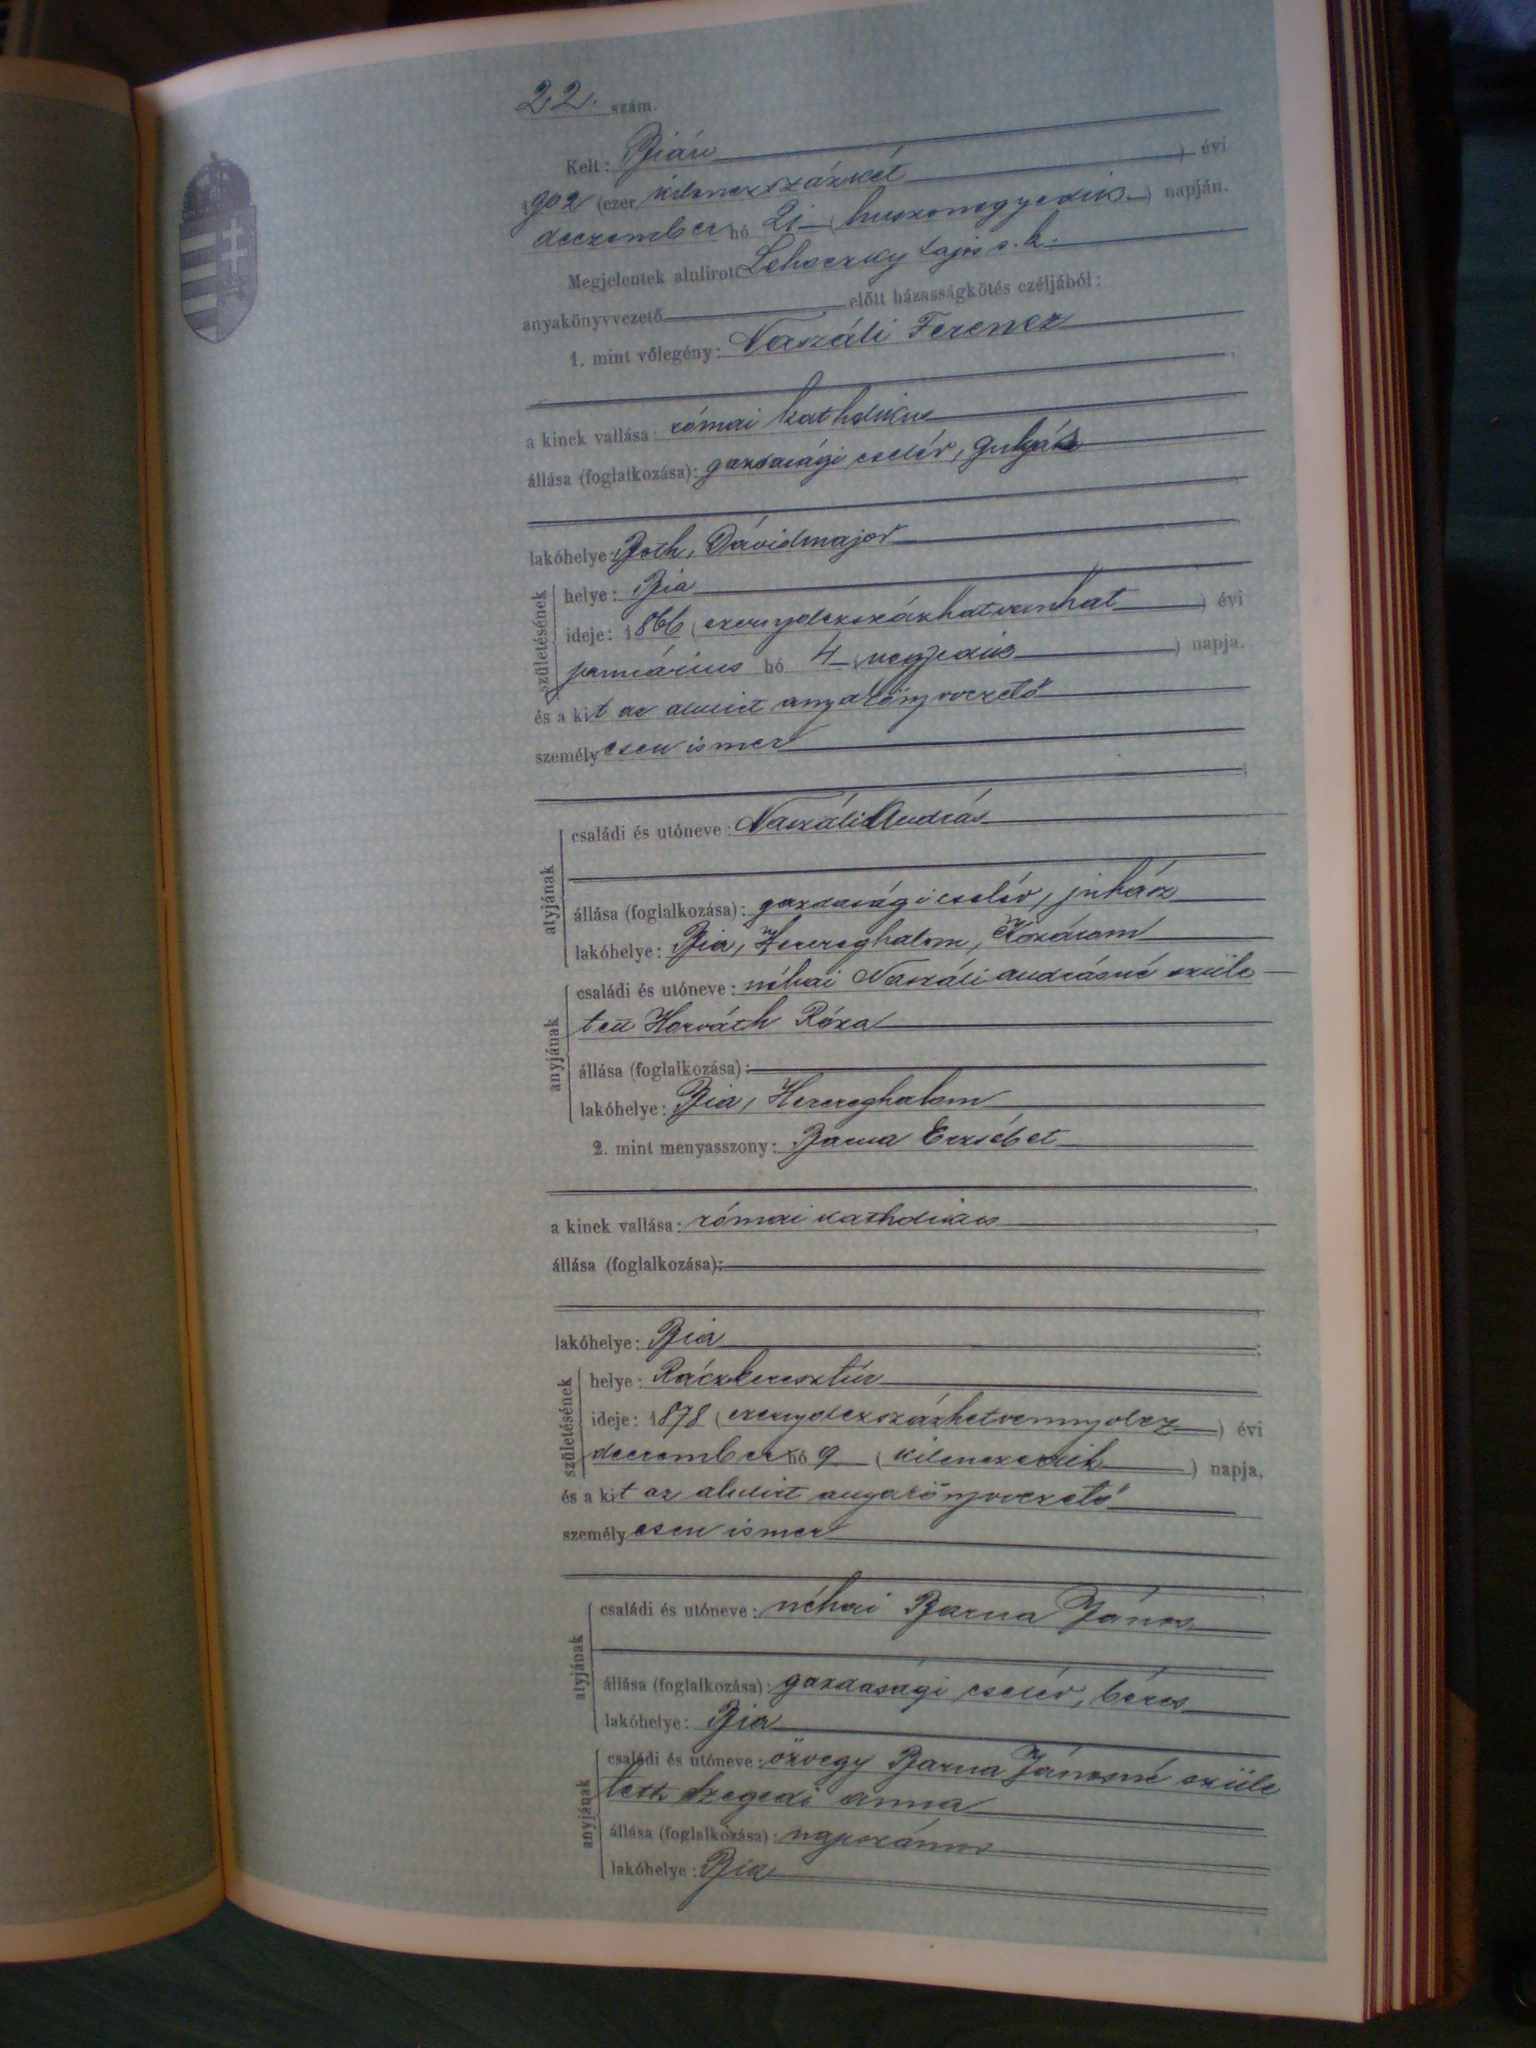 22. szám.
Kelt: Bián ) évi
1902 (ezer kilenczszázkét
deczember hó 21 (huszonegyedik ) napján.
Megjelentek alulirott Lehoczky Lajos s. k.
anyakönyvvezető előtt házasságkötés czéljából:
1. mint vőlegény: Naszáli Ferencz
a kinek vallása: római katholikus
állása (foglalkozása): gazdasági cseléd, gulyás
lakóhelye: Both, Dávidmajor
születésének
helye: Bia
ideje: 1866 (ezernyolczszázhatvanhat ) évi
januárius hó 4 (negyedik ) napja.
és a kit az alulirt anyakönyvvezető
személyesen ismer
atyjának
családi és utóneve: Naszáli András
állása (foglalkozása): gazdasági cseléd, juhász
lakóhelye: Bia, Herczeghalom,
anyjának
családi és utóneve: néhai Naszáli Andrásné szüle
tett Horváth Róza
állása (foglalkozása):
lakóhelye: Bia, Herczeghalom
2. mint menyasszony: Barna Erzsébet
a kinek vallása: római katholikus
állása (foglalkozása):
lakóhelye: Bia
születésének
helye: Ráczkeresztúr
ideje: 1878 (ezernyolczszázhetvennyolcz ) évi
deczember hó 9 (kilenczedik ) napja,
és a kit az alulirt anyakönyvvezető
személyesen ismer
atyjának
családi és utóneve: néhai Barna János
állása (foglalkozása): gazdasági cseléd, béres
lakóhelye: Bia
anyjának
családi és utóneve: özvegy Barna Jánosné szüle
tett Szegedi Anna
állása (foglalkozása): napszámos
lakóhelye: Bia